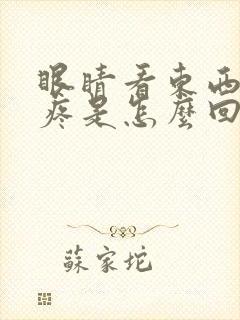 眼睛看東西
疼是怎麼回
蘇家坨